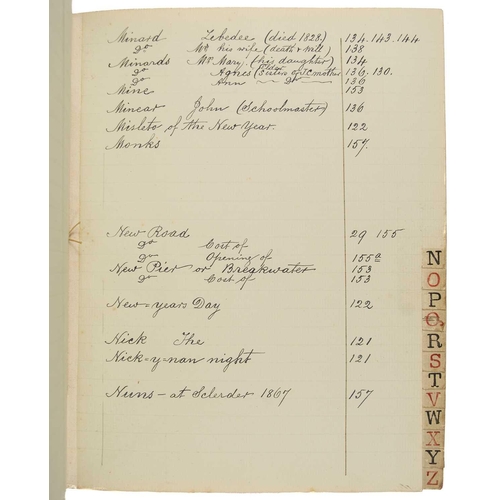 Minard Zebedee (died 1828.) 134.143.144
do Mrs his wife (death & Will) 138
Minards Mrs Mary. (his daughter) 134
do Agnes (Elder Sister of J.C. mother 136, 130.
do Ann — do — 136
Mine 153
Minear John (Schoolmaster) 136
Misleto of the New Year. 122
Monks 157.
New Road 29 155
do Cost of
do Opening of 155a
New Pier or Breakwater 153
do Cost of 153
New=years Day 122
Nick The 121
Nick=y=nan night 121
Nuns - at Sclerder 1867 157
N
O
P
Q
R
S
T
V
W
X
Y
Z